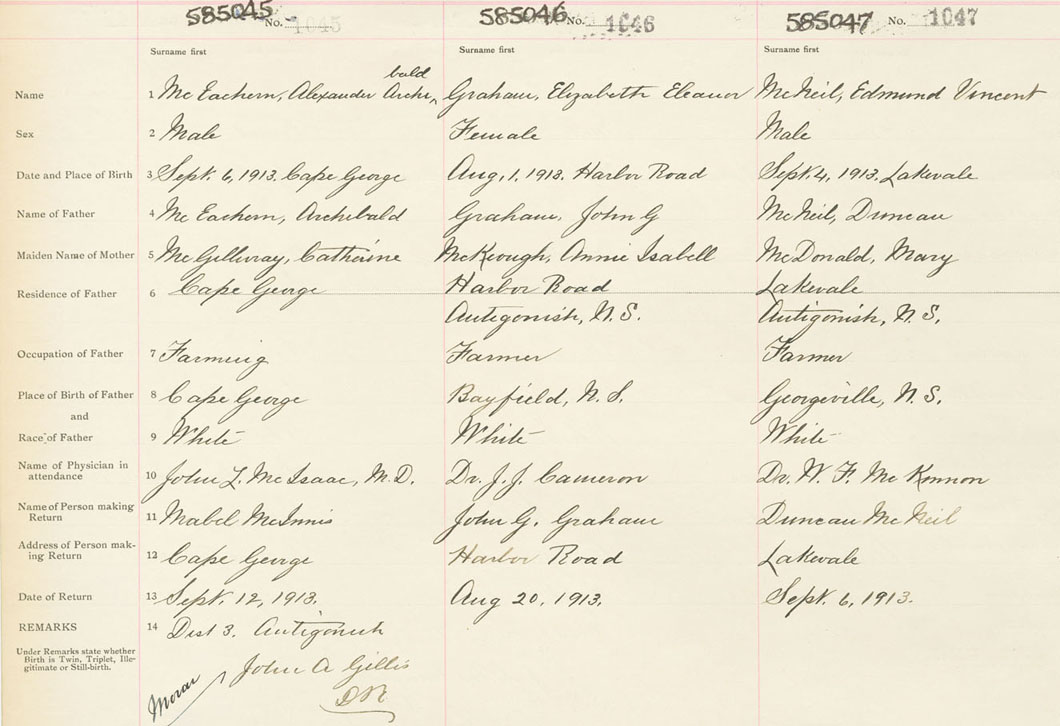 585045 No. 1045 585046 No. 1046 585047 No. 1047
Surname first Surname first Surname first
bald
Name 1 McEachern, Alexander Archi, Graham, Elizabeth Eleanor McNeil, Edmund Vincent
Sex 2 Male Female Male
Date and Place of Birth 3 Sept. 6, 1913. Cape George Aug, 1. 1913. Harbor Road Sept. 4, 1913. Lakevale
Name of Father 4 McEachern, Archibald Graham, John G McNeil, Duncan
Maiden Name of Mother 5 McGillvray, Catherine McKeough, Annie Isabell McDonald, Mary
Residence of Father 6 Cape George Harbor Road Lakevale
Antigonish, N.S. Antigonish, N.S.
Occupation of Father 7 Farming Farmer Farmer
Place of Birth of Father 8 Cape George Bayfield, N.S. Georgeville, N.S.
and
Race of Father 9 White White White
Name of Physician in
attendance 10 John L. McIsaac, M.D. Dr. J.J. Cameron Dr. W. F. McKinnon
Name of Person making
Return 11 Mabel McInnis John G. Graham Duncan McNeil
Address of Person mak-
ing Return 12 Cape George Harbor Road Lakevale
Date of Return 13 Sept. 12, 1913. Aug 20, 1913. Sept. 6, 1913.
REMARKS 14 Dist 3. Antigonish
Under Remarks state whether
Birth is Twin, Triplet, Ille-
gitimate or Still-birth.
John A Gillis
DR